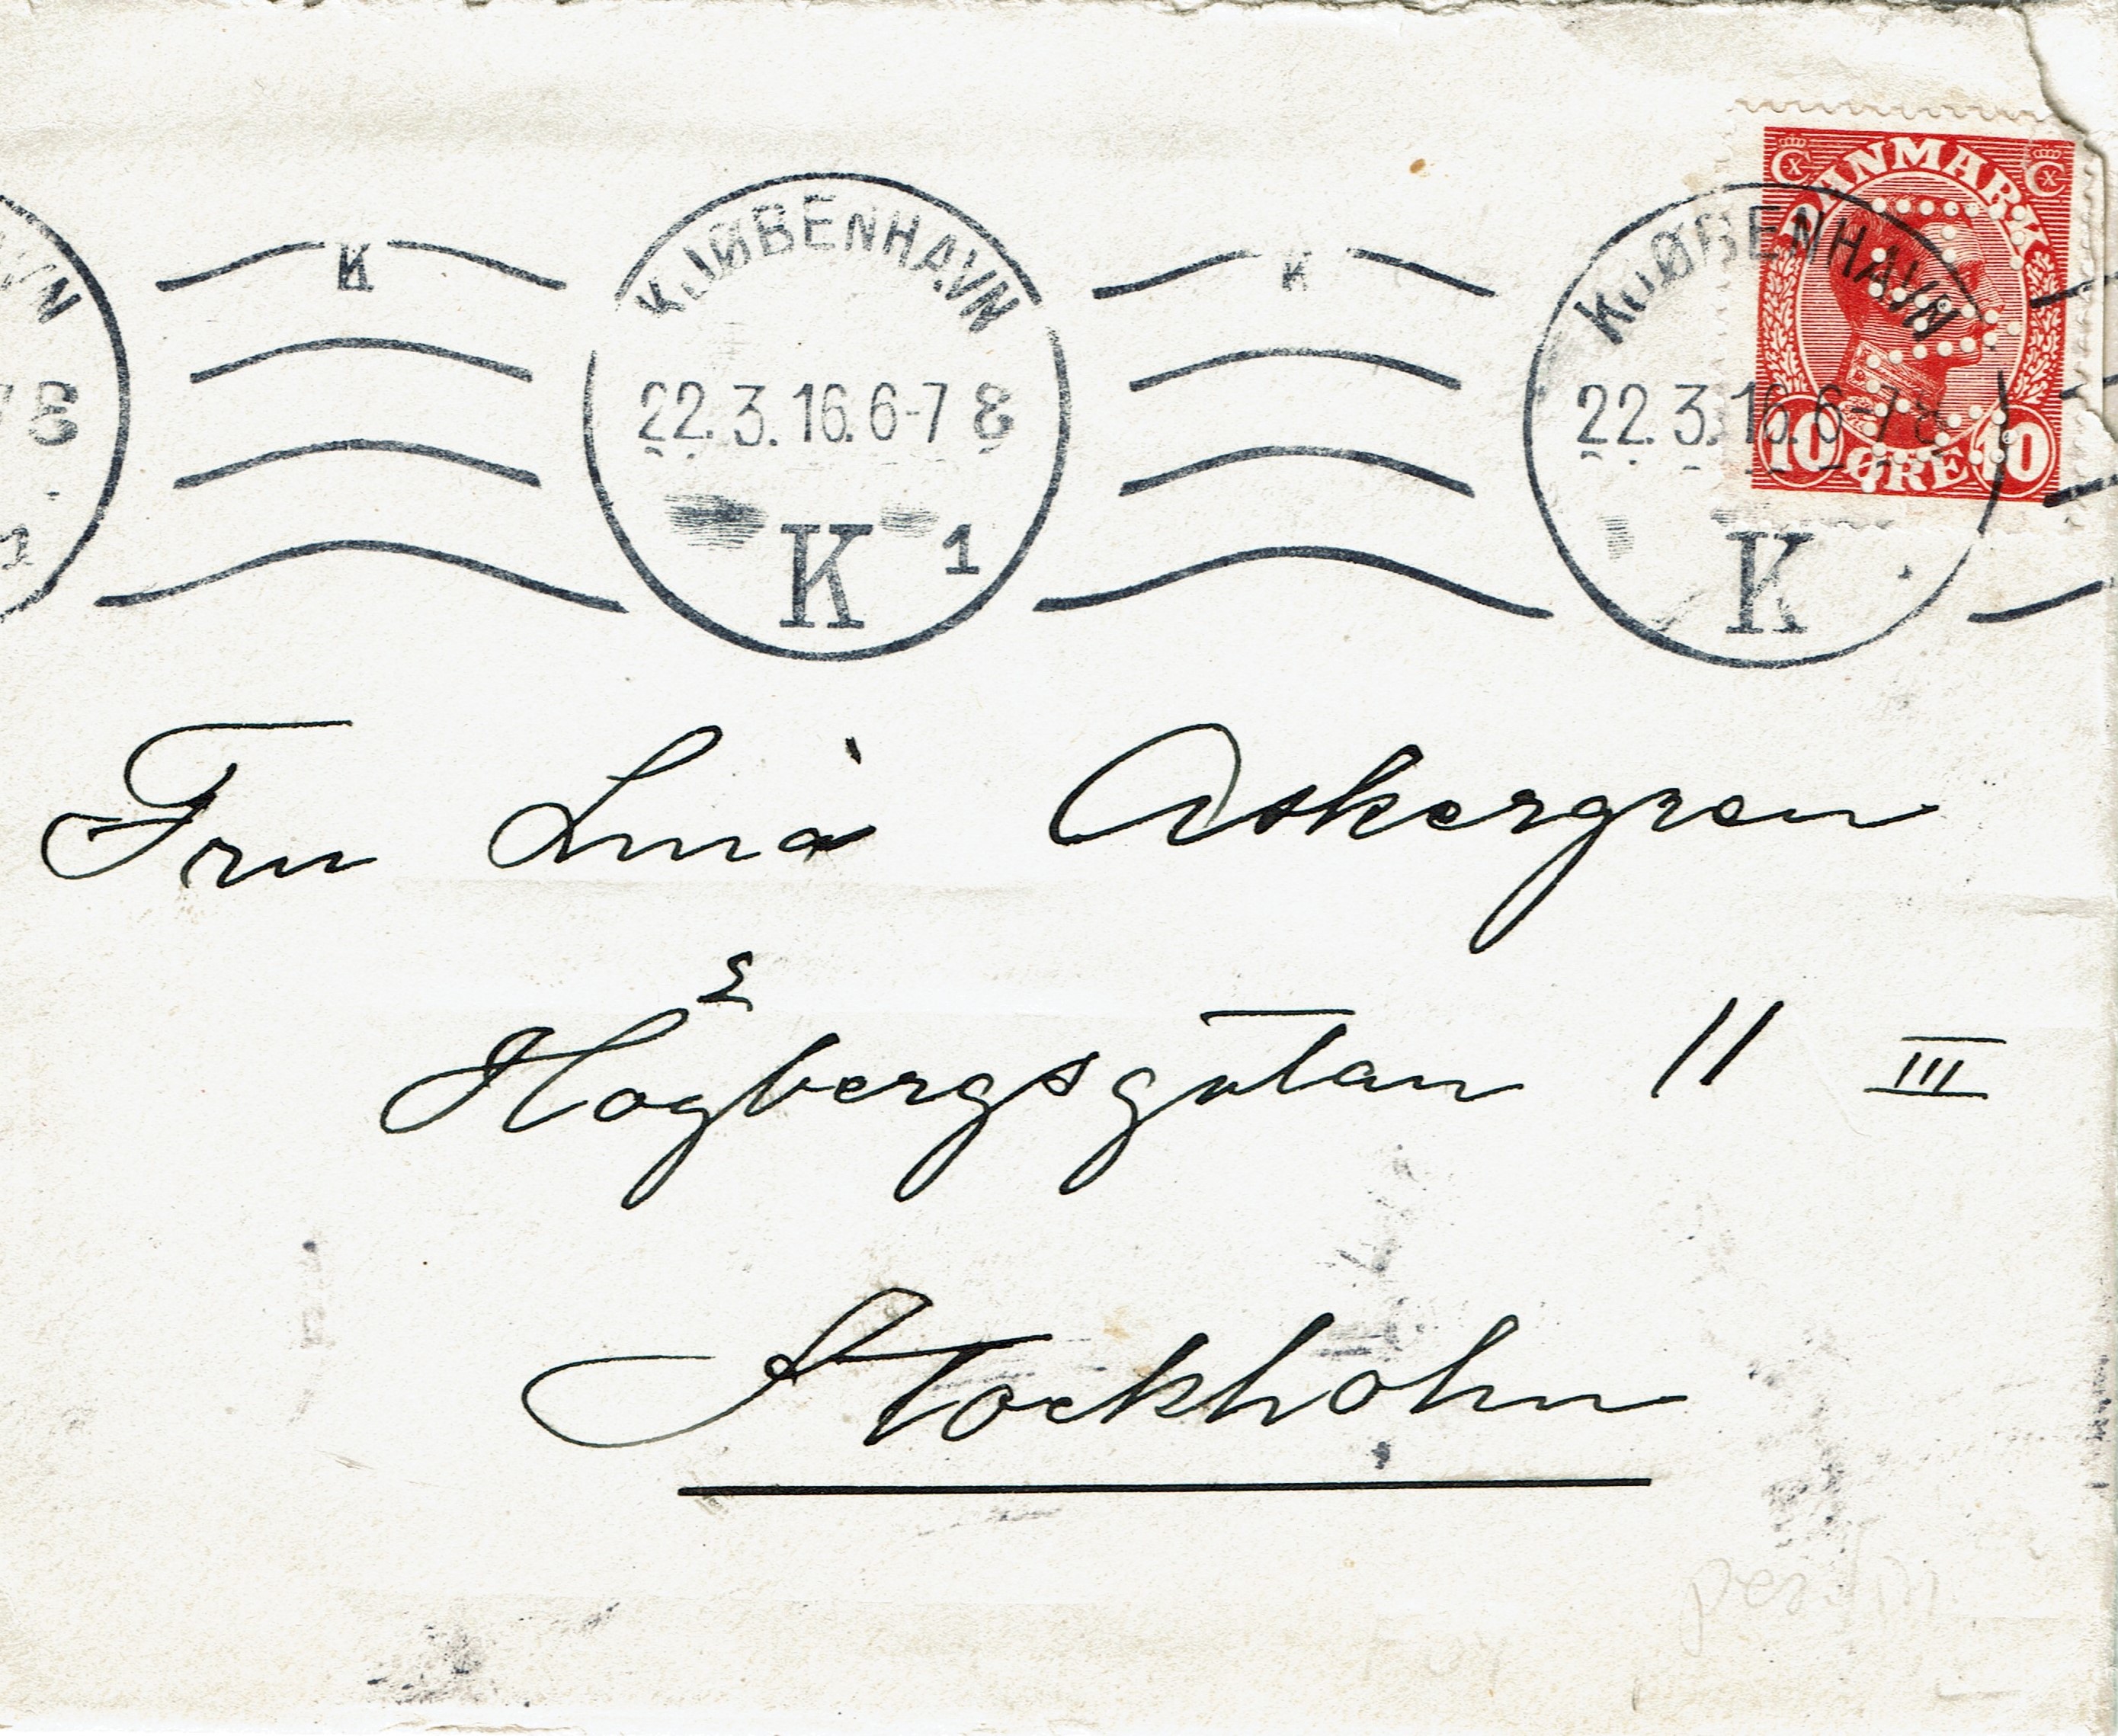 K
KJØBENHAVN
22.3.16.6-7 8
K 1
K
KJØBENHAVN
22.3.16.6-7 8
K
DANMARK
10 ØRE 10
Fru Lina Askergren
Högbergsgatan 11 III
Stockholm